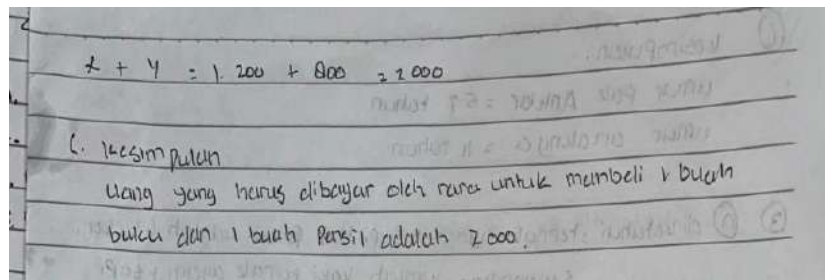 x + y = 1.200 + 800 = 2000
C. Kesimpulan
Uang yang harus dibayar oleh rara untuk membeli 1 buah
buku dan 1 buah Pensil adalah 2000.